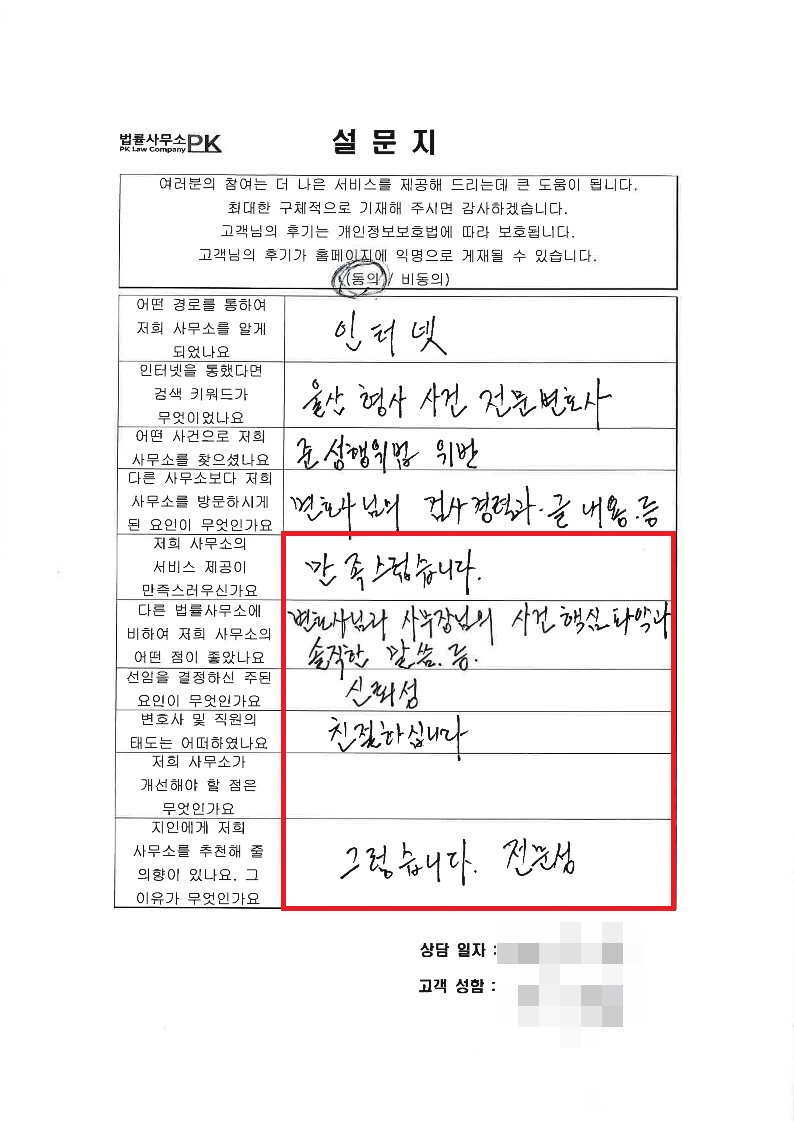 법률사무소PK
PK Law Company
설 문 지
여러분의 참여는 더 나은 서비스를 제공해 드리는데 큰 도움이 됩니다.
최대한 구체적으로 기재해 주시면 감사하겠습니다.
고객님의 후기는 개인정보보호법에 따라 보호됩니다.
고객님의 후기가 홈페이지에 익명으로 게재될 수 있습니다.
(동의 / 비동의)
어떤 경로를 통하여
저희 사무소를 알게
되었나요
인터넷
인터넷을 통했다면
검색 키워드가
무엇이었나요
울산 형사 사건 전문변호사
어떤 사건으로 저희
사무소를 찾으셨나요
준 성행위범 위반
다른 사무소보다 저희
사무소를 방문하시게
된 요인이 무엇인가요
변호사님의 검사경력과.글 내용.등
저희 사무소의
서비스 제공이
만족스러우신가요
만족스럽습니다.
다른 법률사무소에
비하여 저희 사무소의
어떤 점이 좋았나요
변호사님과 사무장님의 사건 핵심파악과
솔직한 말씀. 등.
선임을 결정하신 주된
요인이 무엇인가요
신뢰성
변호사 및 직원의
태도는 어떠하였나요
친절하십니다
저희 사무소가
개선해야 할 점은
무엇인가요
지인에게 저희
사무소를 추천해 줄
의향이 있나요. 그
이유가 무엇인가요
그렇습니다. 전문성
상담 일자 :
고객 성함 :